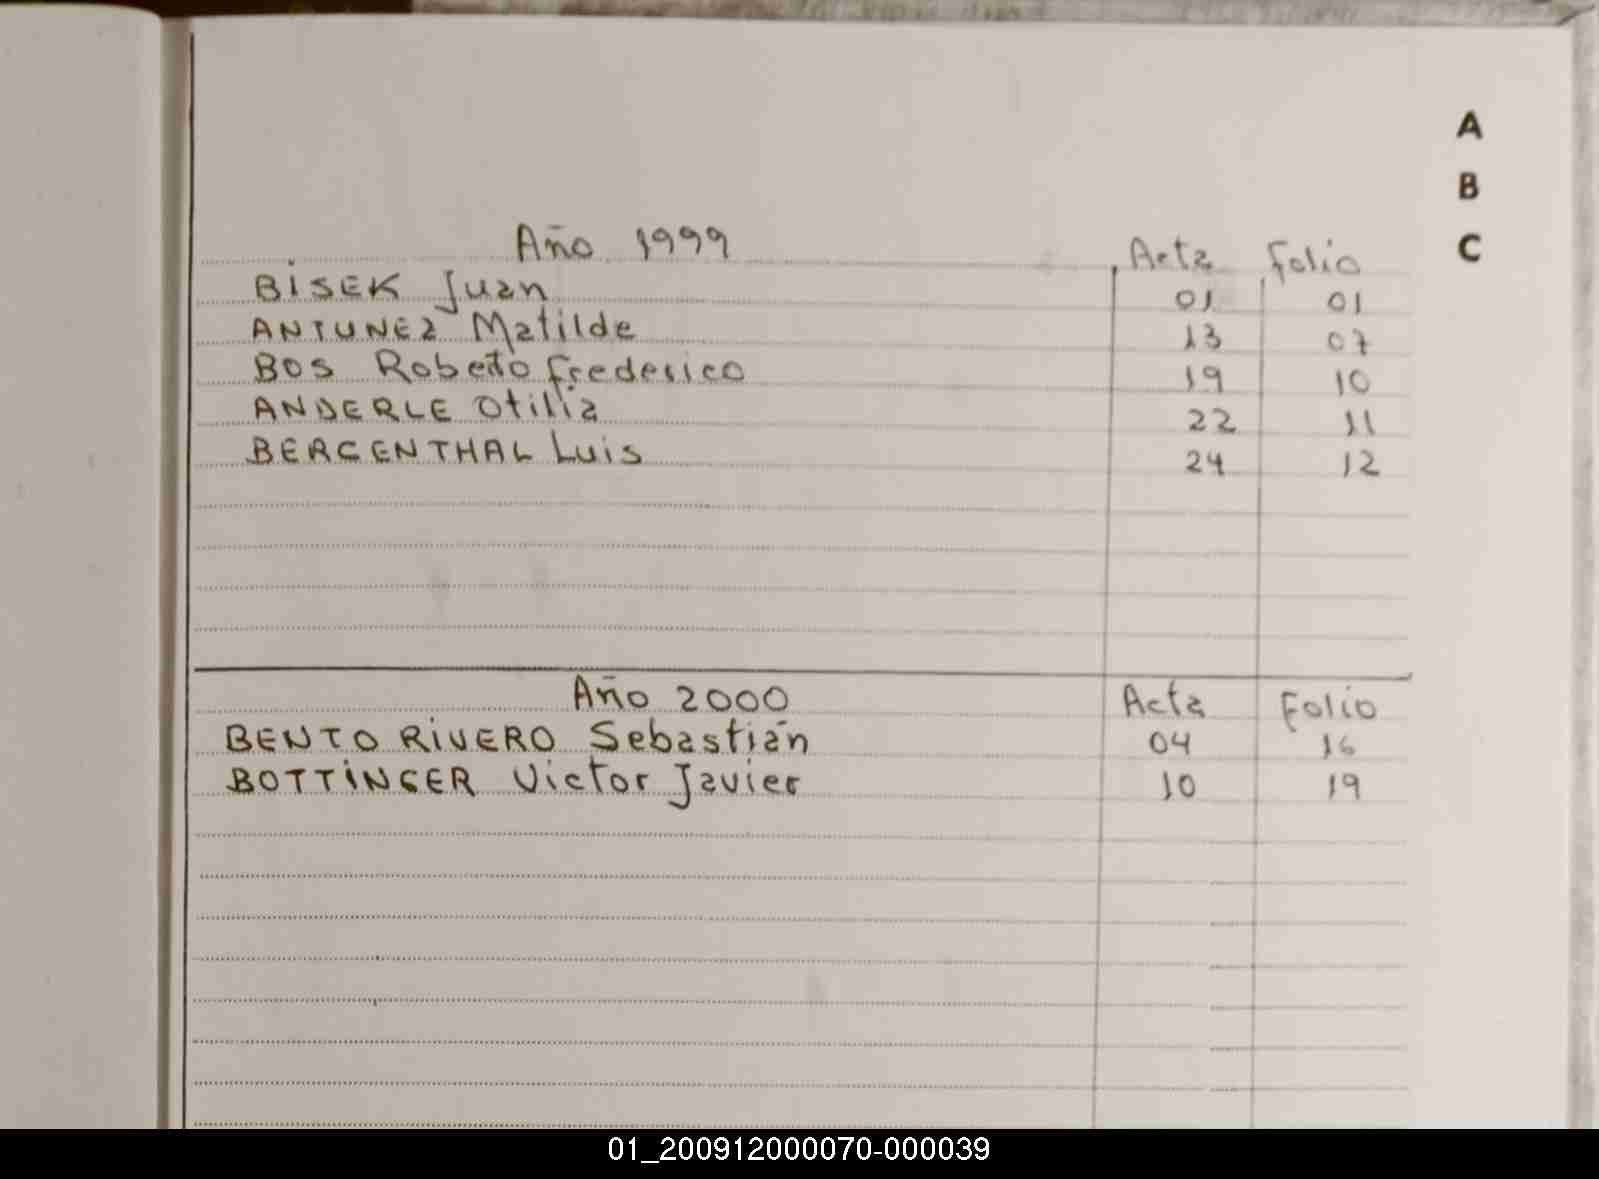 A
B
C
Año 1999 Acta Folio
BISEK Juan 01 01
ANTUNEZ Matilde 13 07
BOS Roberto Frederico 19 10
ANDERLE Otilia 22 11
BERGENTHAL Luis 24 12
Año 2000 Acta Folio
BENTO RIVERO Sebastián 04 16
BOTTINGER Victor Javier 10 19
01_200912000070-000039